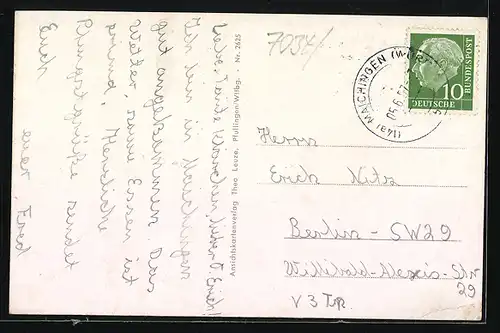 Liebe Tante Klärchen, lieber O. Erich!
Bin heil in Maichingen
gut angekommen. Das
Wetter sowie Essen ist
prima. Herzliche
Pfingstgrüße sendet
Euch
euer Fred
Ansichtskartenverlag Theo Leuze, Pfullingen/Wttbg. Nr. 2625
7034/
(14a) MAICHINGEN (WÜRTT)
05.6.57
10
DEUTSCHE
BUNDESPOST
Herrn
Erich
Berlin - SW29
Willibald-Alexis-Str
29
V 3 Tr.